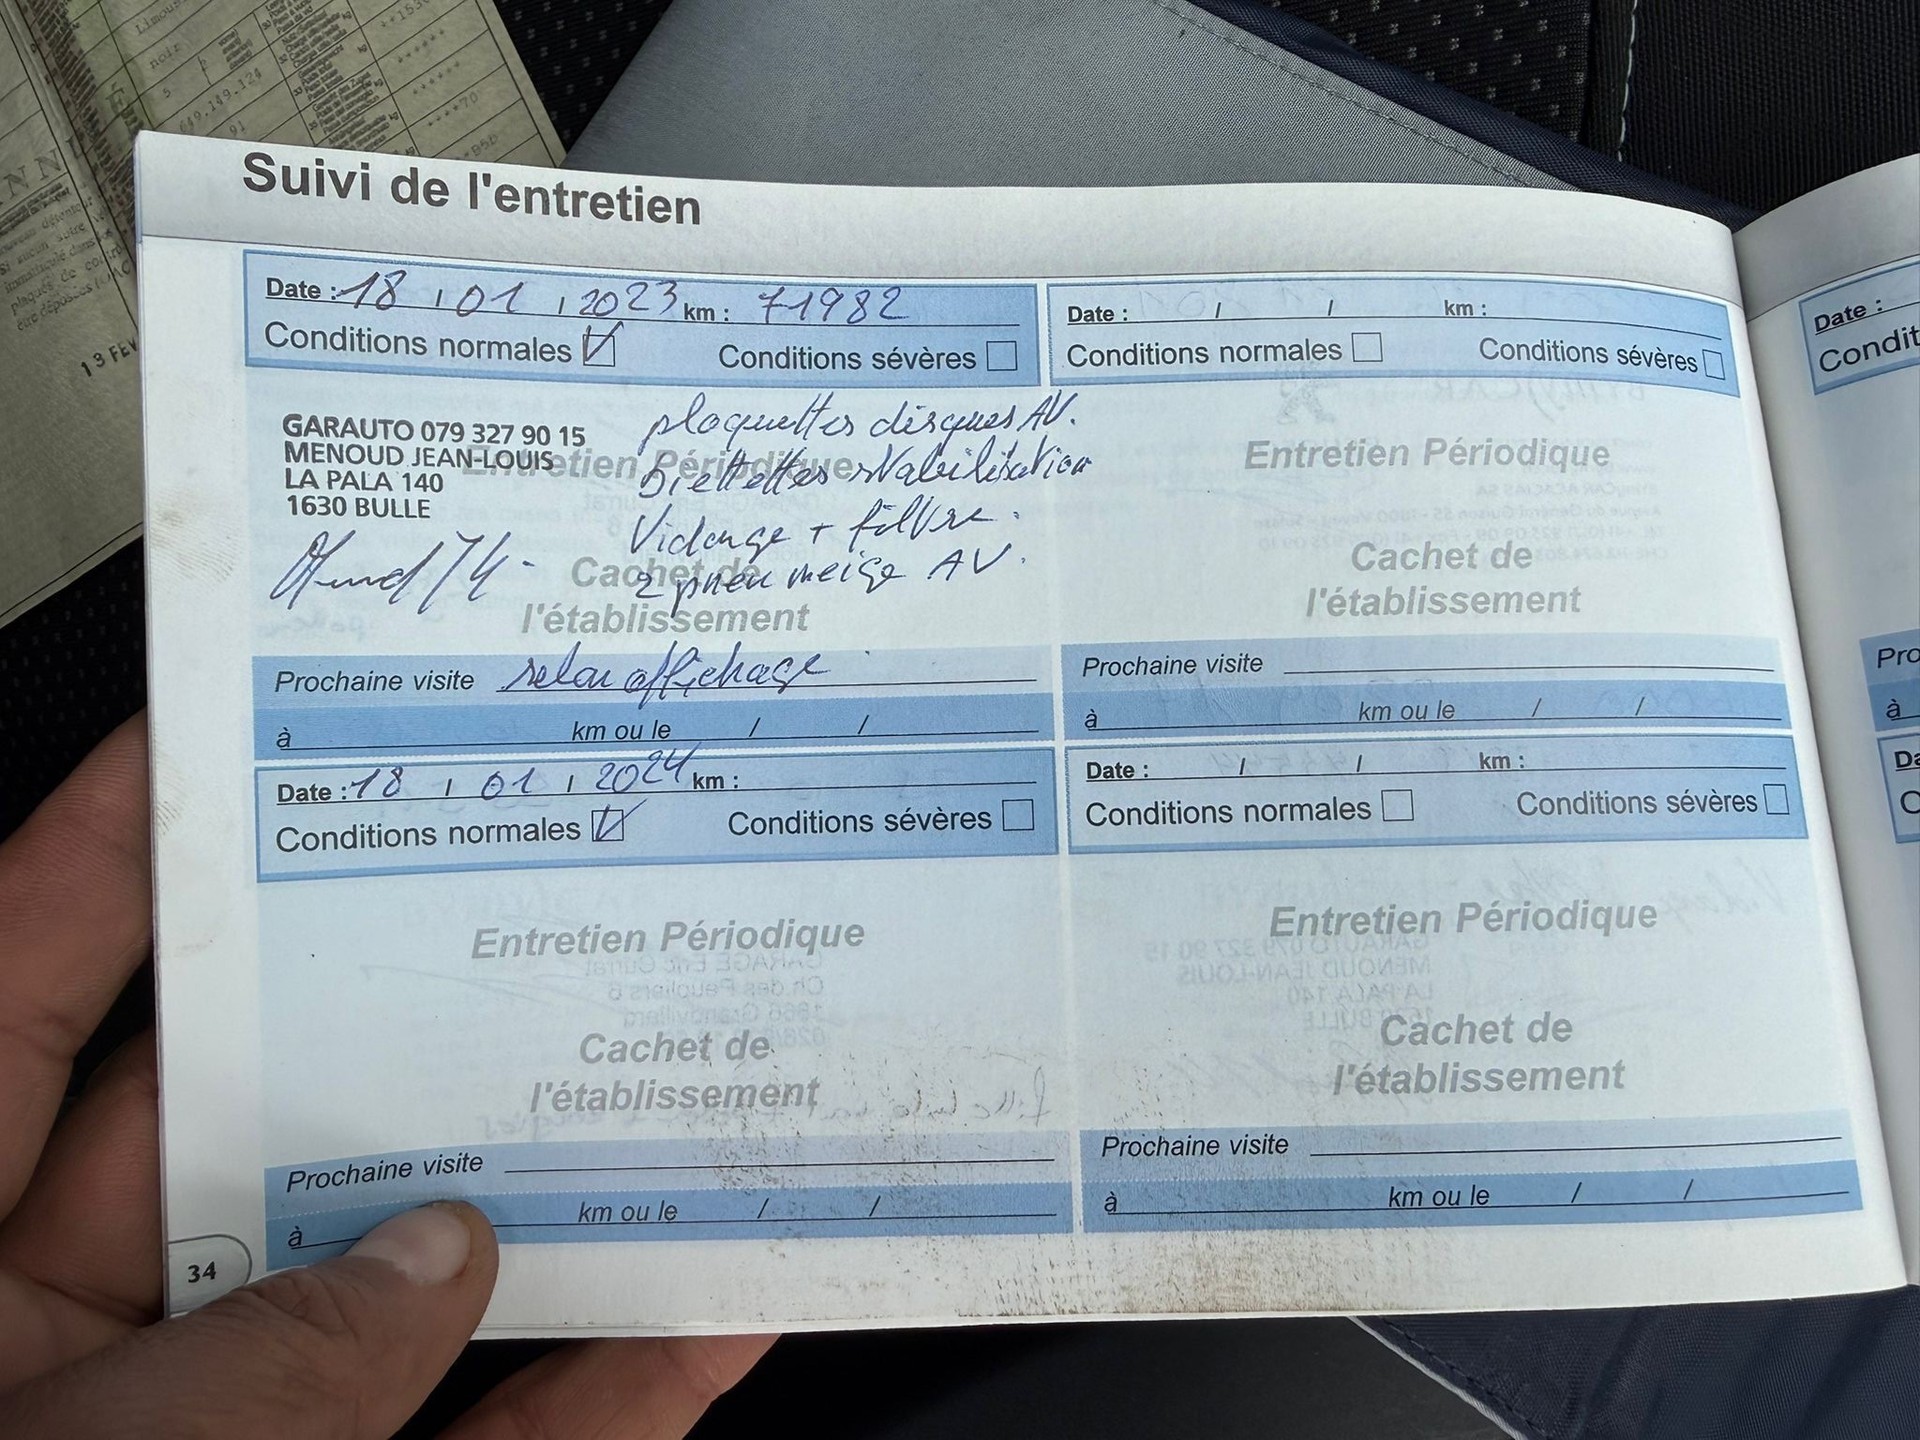 Limous
noir
5
649.149.124
91
**153
****70
**B5b
13 FEV
Suivi de l'entretien
Date : 18 / 01 / 2023 km : 71982
Conditions normales Conditions sévères
GARAUTO 079 327 90 15
MENOUD JEAN-LOUIS
LA PALA 140
1630 BULLE
plaquettes disques AV.
Biellettes stabilisation
Vidange + filtre.
2 pneu neige AV.
Entretien Périodique
Cachet de
l'établissement
Prochaine visite selon affichage
à km ou le / /
Date : 18 / 01 / 2024 km :
Conditions normales Conditions sévères
Entretien Périodique
Cachet de
l'établissement
Prochaine visite
à km ou le / /
34
Date : / / km :
Conditions normales Conditions sévères
Entretien Périodique
Cachet de
l'établissement
Prochaine visite
à km ou le / /
Date : / / km :
Conditions normales Conditions sévères
Entretien Périodique
Cachet de
l'établissement
Prochaine visite
à km ou le / /
Date :
Condit
Pro
à
Da
C